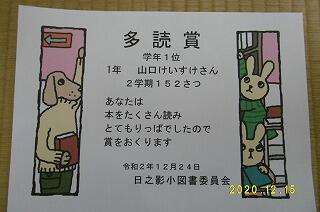 多読賞
学年1位
1年 山口けいすけさん
2学期152さつ
あなたは
本をたくさん読み
とてもりっぱでしたので
賞をおくります
令和2年12月24日
日之影小図書委員会
2020.12.15